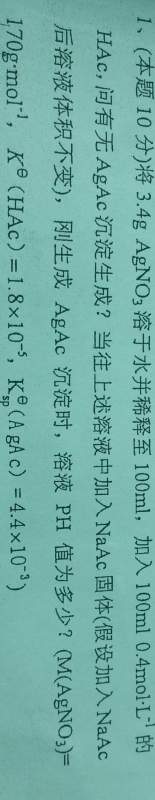 1、(本题 10 分)将 3.4g AgNO₃ 溶于水并稀释至 100ml，加入 100ml 0.4mol·L⁻¹ 的
HAc, 问有无 AgAc 沉淀生成？当往上述溶液中加入 NaAc 固体(假设加入 NaAc
后溶液体积不变)，刚生成 AgAc 沉淀时，溶液 PH 值为多少？(M(AgNO₃)=
170g·mol⁻¹，K^Θ (HAc)=1.8×10⁻⁵，K_sp^Θ (AgAc)=4.4×10⁻³)